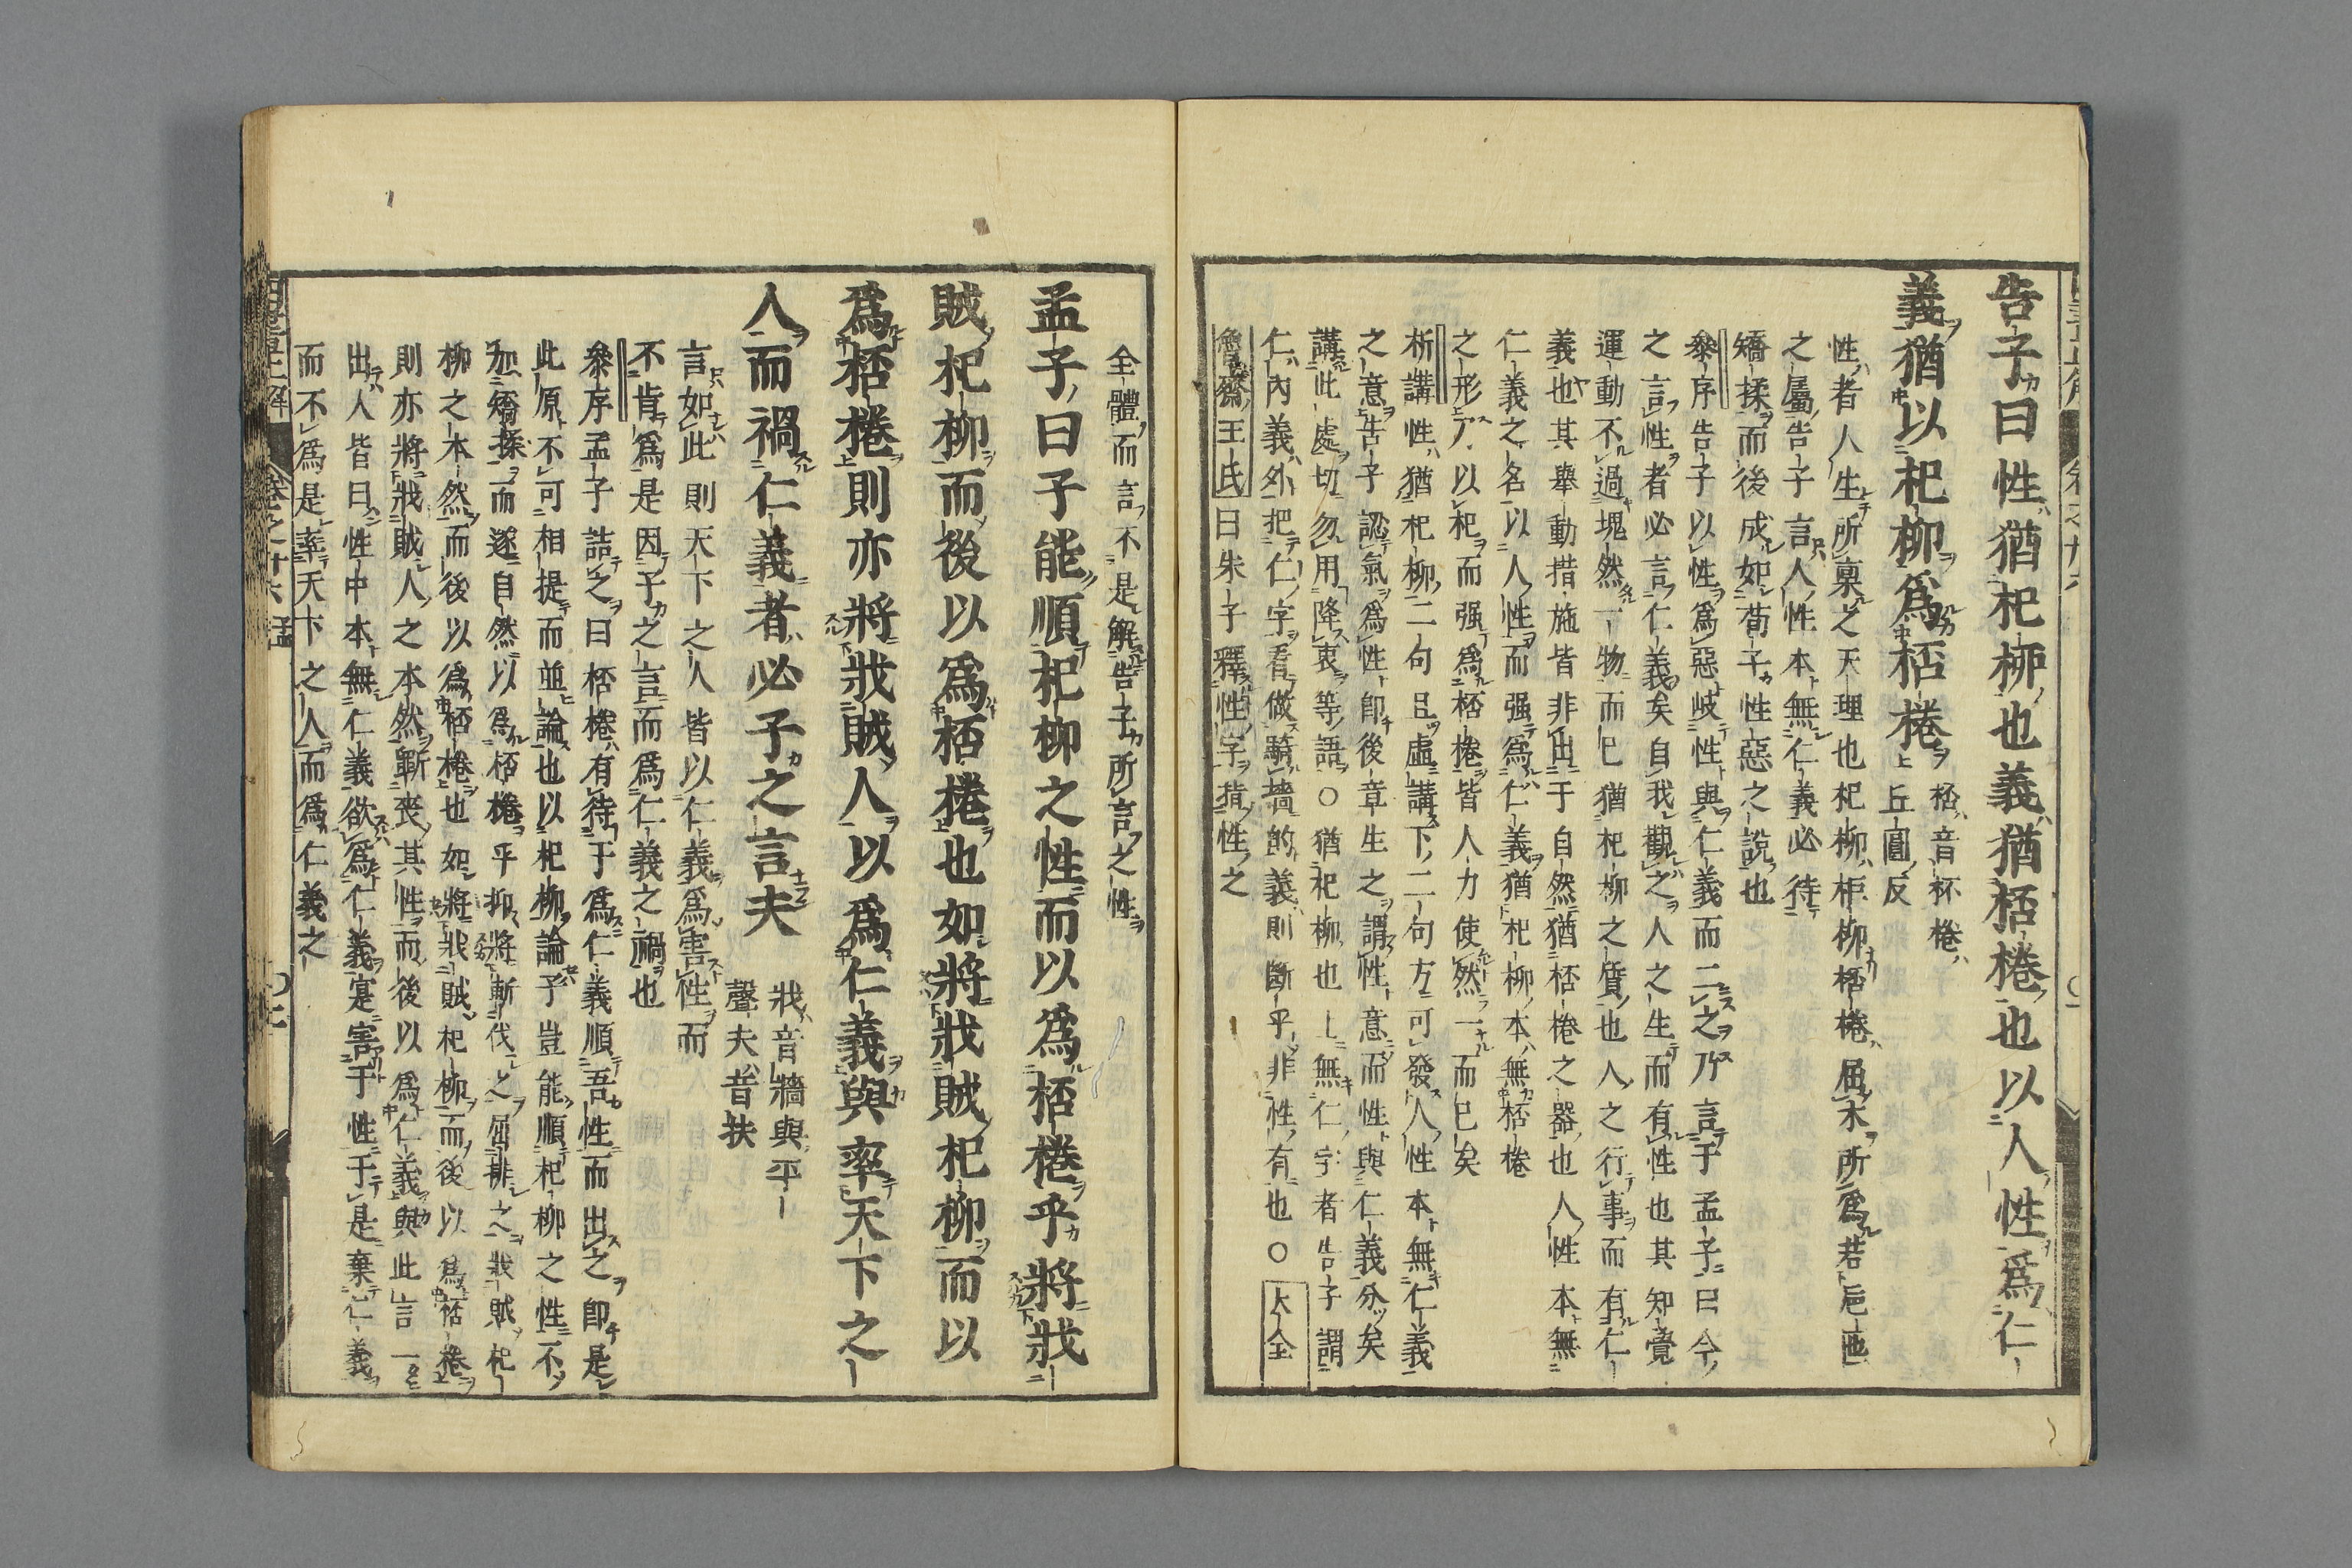 告子曰性猶杞柳也義猶桮棬也以人性爲仁
義猶以杞柳爲桮棬
桮音杯棬
丘圓反
性者人生所稟之天理也杞柳柜柳桮棬屈木所爲若巵匜
之屬告子言人性本無仁義必待
矯揉而後成如荀子性惡之說也
參序告子以性爲惡岐性與仁義而二之乃言于孟子曰今
之言性者必言仁義矣自我觀之人之生而有性也其知覺
運動不過塊然一物而已猶杞柳之質也人之行事而有仁
義也其舉動措施皆非出于自然猶桮棬之器也人性本無
仁義之名以人性而强爲仁義猶杞柳本無桮棬
之形乃以杞而强爲桮棬皆人力使然一而已矣
析講性猶杞柳二句且虛講下二句方可發人性本無仁義
之意告子認氣爲性卽後章生之謂性意而性與仁義分矣
講此處切勿用降衷等語○猶杞柳也上無仁字者告子謂
仁內義外把仁字看做騎墻的義則斷乎非性有也○大全
魯齋王氏曰朱子釋性字指性之
全體而言不是解告子所言之性
孟子曰子能順杞柳之性而以爲桮棬乎將戕
賊杞柳而後以爲桮棬也如將戕賊杞柳而以
爲桮棬則亦將戕賊人以爲仁義與率天下之
人而禍仁義者必子之言夫
戕音牆與平
聲夫音扶
言如此則天下之人皆以仁義爲害性而
不肯爲是因子之言而爲仁義之禍也
參序孟子詰之曰桮棬有待于爲仁義順吾性而出之卽是
此原不可相提而並論也以杞柳論子豈能順杞柳之性不
加矯揉而遂自然以爲桮棬乎抑將斬伐之屈排之戕賊杞
柳之本然而後以爲桮棬也如將戕賊杞柳而後以爲桮棬
則亦將戕賊人之本然斲喪其性而後以爲仁義與此言一
出人皆曰性中本無仁義欲爲仁義寔害于性于是棄仁義
而不爲是率天下之人而爲仁義之